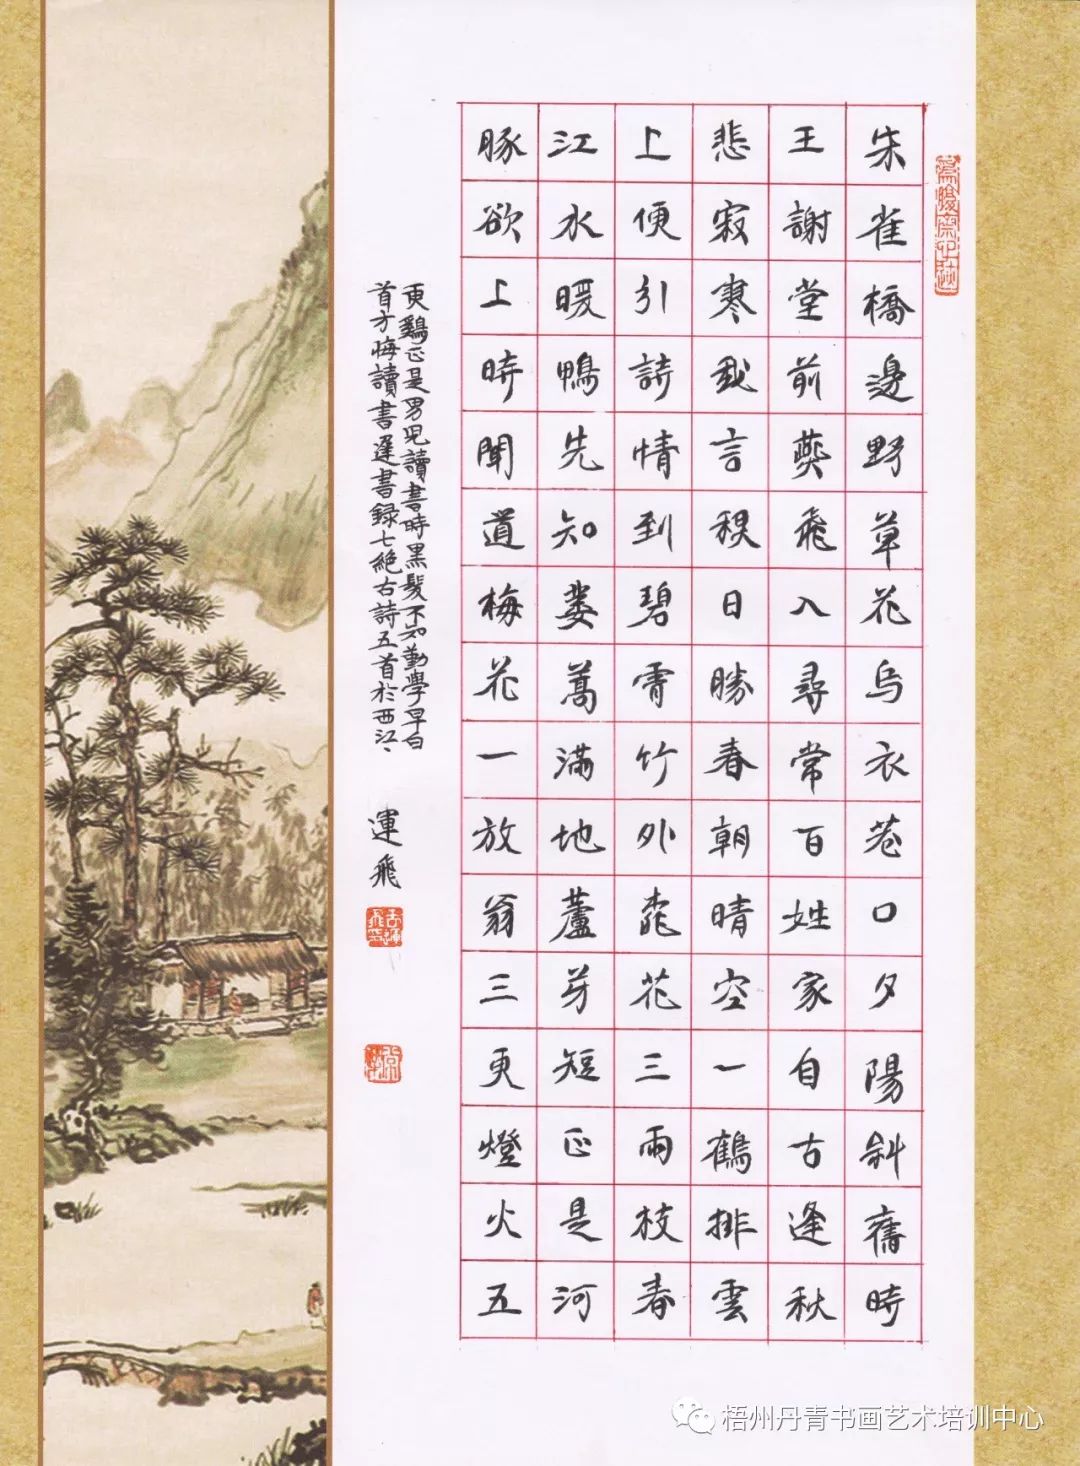 朱雀橋邊野草花烏衣巷口夕陽斜舊時
王謝堂前燕飛入尋常百姓家自古逢秋
悲寂寒我言秋日勝春朝晴空一鶴排雲
上便引詩情到碧霄竹外桃花三兩枝春
江水暖鴨先知蔞蒿滿地蘆芽短正是河
豚欲上時聞道梅花一放翁三更燈火五
更鷄正是男兒讀書時黑髮不知勤學早白
首方悔讀書遲書錄七絕古詩五首於西江、
運飛
梧州丹青书画艺术培训中心